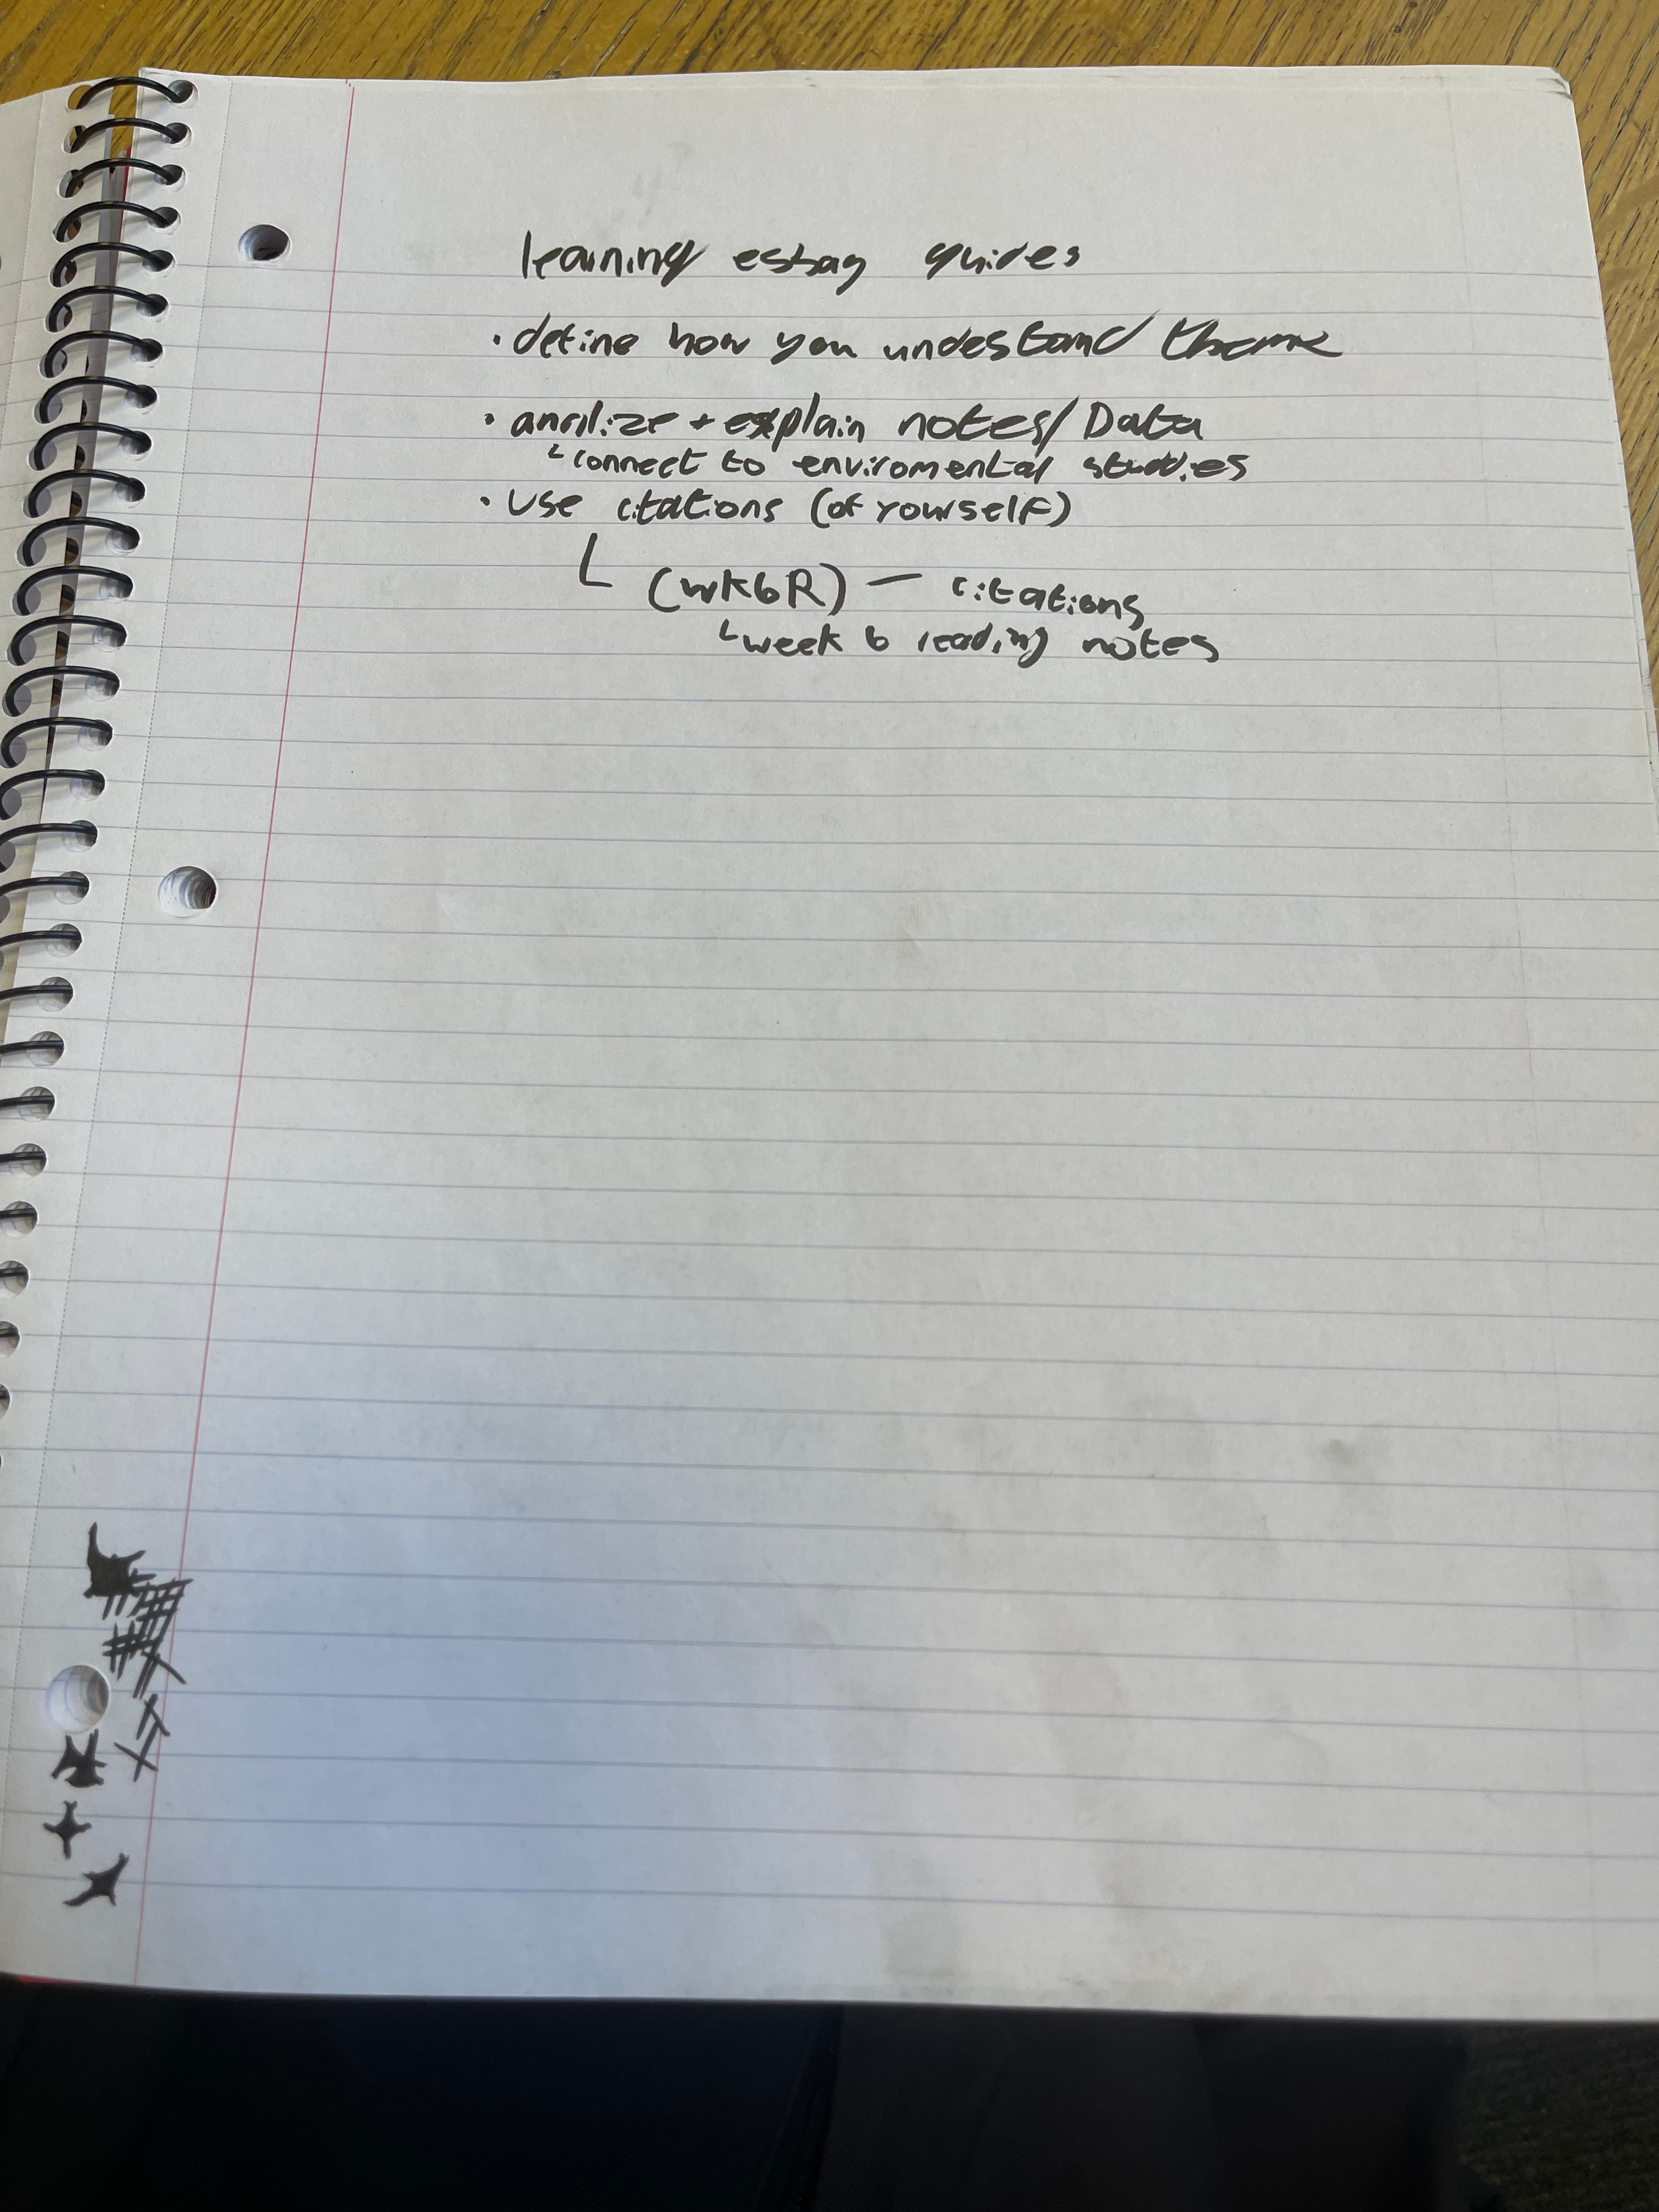 learning essay guides
· define how you undestand theme
· analize + explain notes/Data
└ connect to enviromental studies
· Use citations (of yourself)
└ (wk6R) — citations
└ week 6 reading notes